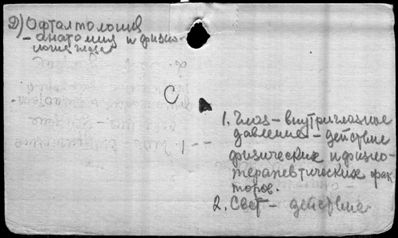 Д) Офталмология
- анатомия и физио-
логия глаза
C
1. Глаз - внутриглазное
давление - действие
физических и физио-
терапевтических фак-
торов.
2. Свет - действие